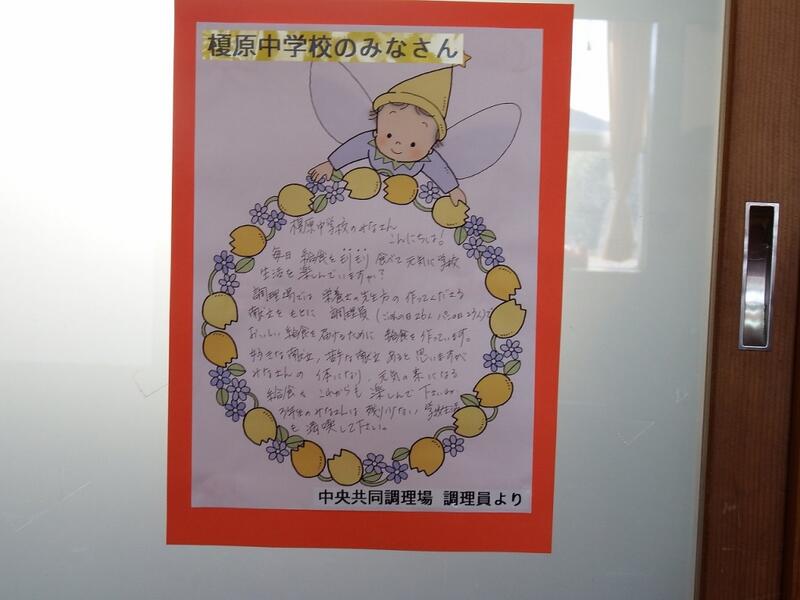 榎原中学校のみなさん
榎原中学校のみなさん
こんにちは!
毎日 給食をモリモリ食べて元気に学校
生活を楽しんでいますか?
調理場では 栄養士の先生方の作ってくださる
献立をもとに 調理員(ごはんの日26人 パンの日23人)で
おいしい給食を届けるために 給食を作っています。
好きな献立、苦手な献立あると思いますが
みなさんの 体になり、元気の素になる
給食を これからも 楽しんで下さいね
3年生のみなさんは 残り少ない 学校生活
を 満喫して下さい。
中央共同調理場 調理員より